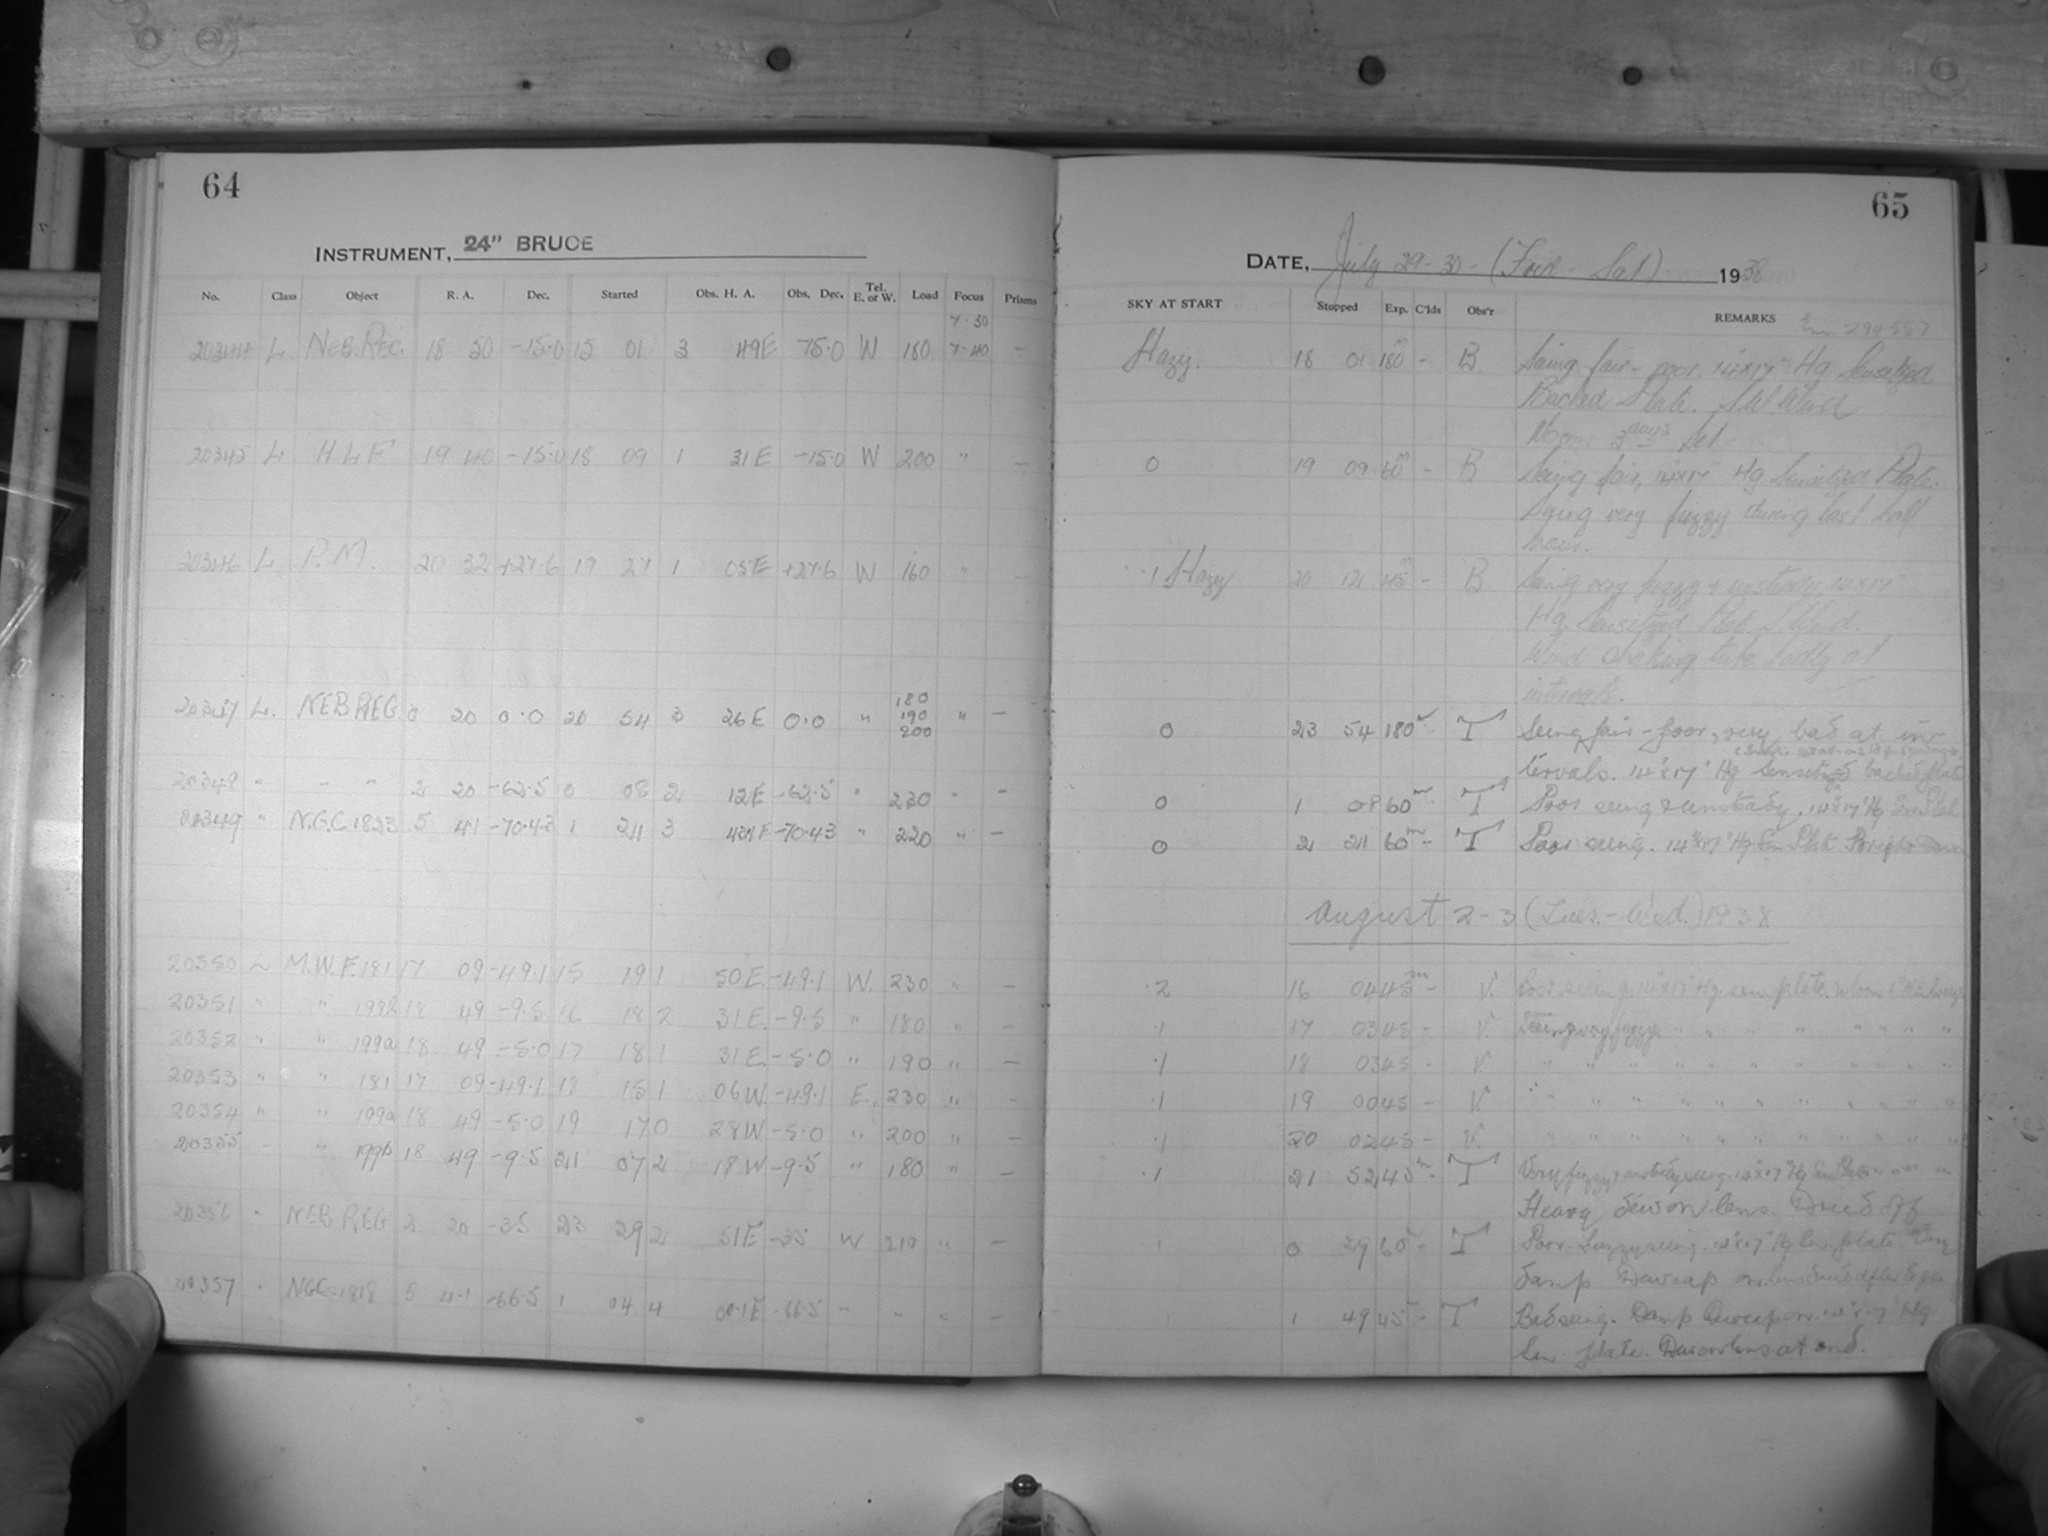 64
INSTRUMENT, 24" BRUCE
No. Class Object R. A. Dec. Started Obs. H. A. Obs. Dec. Tel. E. or W. Load Focus Prisms
7.30
20344 L. NEB.REG. 18 50 -15.0 15 01 3 49E 75.0 W 180 7.40 -
20345 L H L F 19 40 -15.0 18 09 1 31E -15.0 W 200 " -
20346 L P.M. 20 32 +27.6 19 27 1 05E +27.6 W 160 " -
20347 L. NEB REG 0 20 0.0 20 54 3 26E 0.0 " 180 190 200 " -
20348 " " " 2 20 -62.5 0 08 2 12E -62.5 " 230 " -
20349 " N.G.C 1833 5 41 -70.43 1 21 3 -70.43 " 220 " -
20350 L M.W.F. 181 17 09 -49.1 15 19 1 50E -49.1 W. 230 " -
20351 " " 199b 18 49 -9.5 16 18 2 31E. -9.5 " 180 " -
20352 " " 199a 18 49 -5.0 17 18 1 31E. -5.0 " 190 " -
20353 " " 181 17 09 -49.1 18 15 1 06W. -49.1 E. 230 " -
20354 " " 199a 18 49 -5.0 19 17 0 28W -5.0 " 200 " -
20355 " " 199b 18 49 -9.5 21 07 2 18W -9.5 " 180 " -
20356 " NEB REG 2 20 -35 23 29 2 51E -35 W 210 " -
20357 " NGC.1818 5 4.1 -66.5 1 04 4 -66.5 " " " -
65
DATE, July 29-30-(Frid - Sat) 1938
SKY AT START Stopped Exp. C'lds Obs'r REMARKS
Hazy. 18 01 180m - B. Seeing fair - poor. 14"x17" Hg Sensitized
Backed Plate. S.W. Wind
Moon 3 days
0 19 09 60m - B Seeing fair, 14"x17" Hg Sensitized Plate.
Seeing very fuzzy during last half
hour.
.1 Hazy 20 12 45m - B. Seeing very fuzzy + unsteady. 14x17"
Hg Sensitized Plate S. Wind.
Wind shaking tube badly at
intervals.
0 23 54 180m - T Seeing fair - poor, very bad at in-
tervals. 14"x17" Hg Sensitized backed plate
0 1 08 60m - T Poor seeing & unsteady. 14"x17" Hg Sen Plate
0 2 21 60m - T Poor seeing. 14"x17" Hg Sen Plate.
August 2-3 (Tues.-Wed.) 1938
.2 16 04 45m - V. Poor seeing. 14"x17" Hg sen. plate. Moon
.1 17 03 45 - V. Seeing very fuzzy. " " " " " " "
.1 18 03 45 - V. " " " " " " " "
.1 19 00 45 - V. " " " " " " " "
.1 20 02 45 - V. " " " " " " " "
.1 21 52 45m - T Very fuzzy & unsteady seeing. 14"x17" Hg Sen Plate " " "
Heavy dew on lens. Dried off
0 29 60m - T Poor fuzzy seeing. 14"x17" Hg Sen. plate. Very
damp Dewcap on
1 49 45m - T Bad seeing. Damp Dewcap on. 14"x17" Hg
Sen. plate. Dew on lens at end.